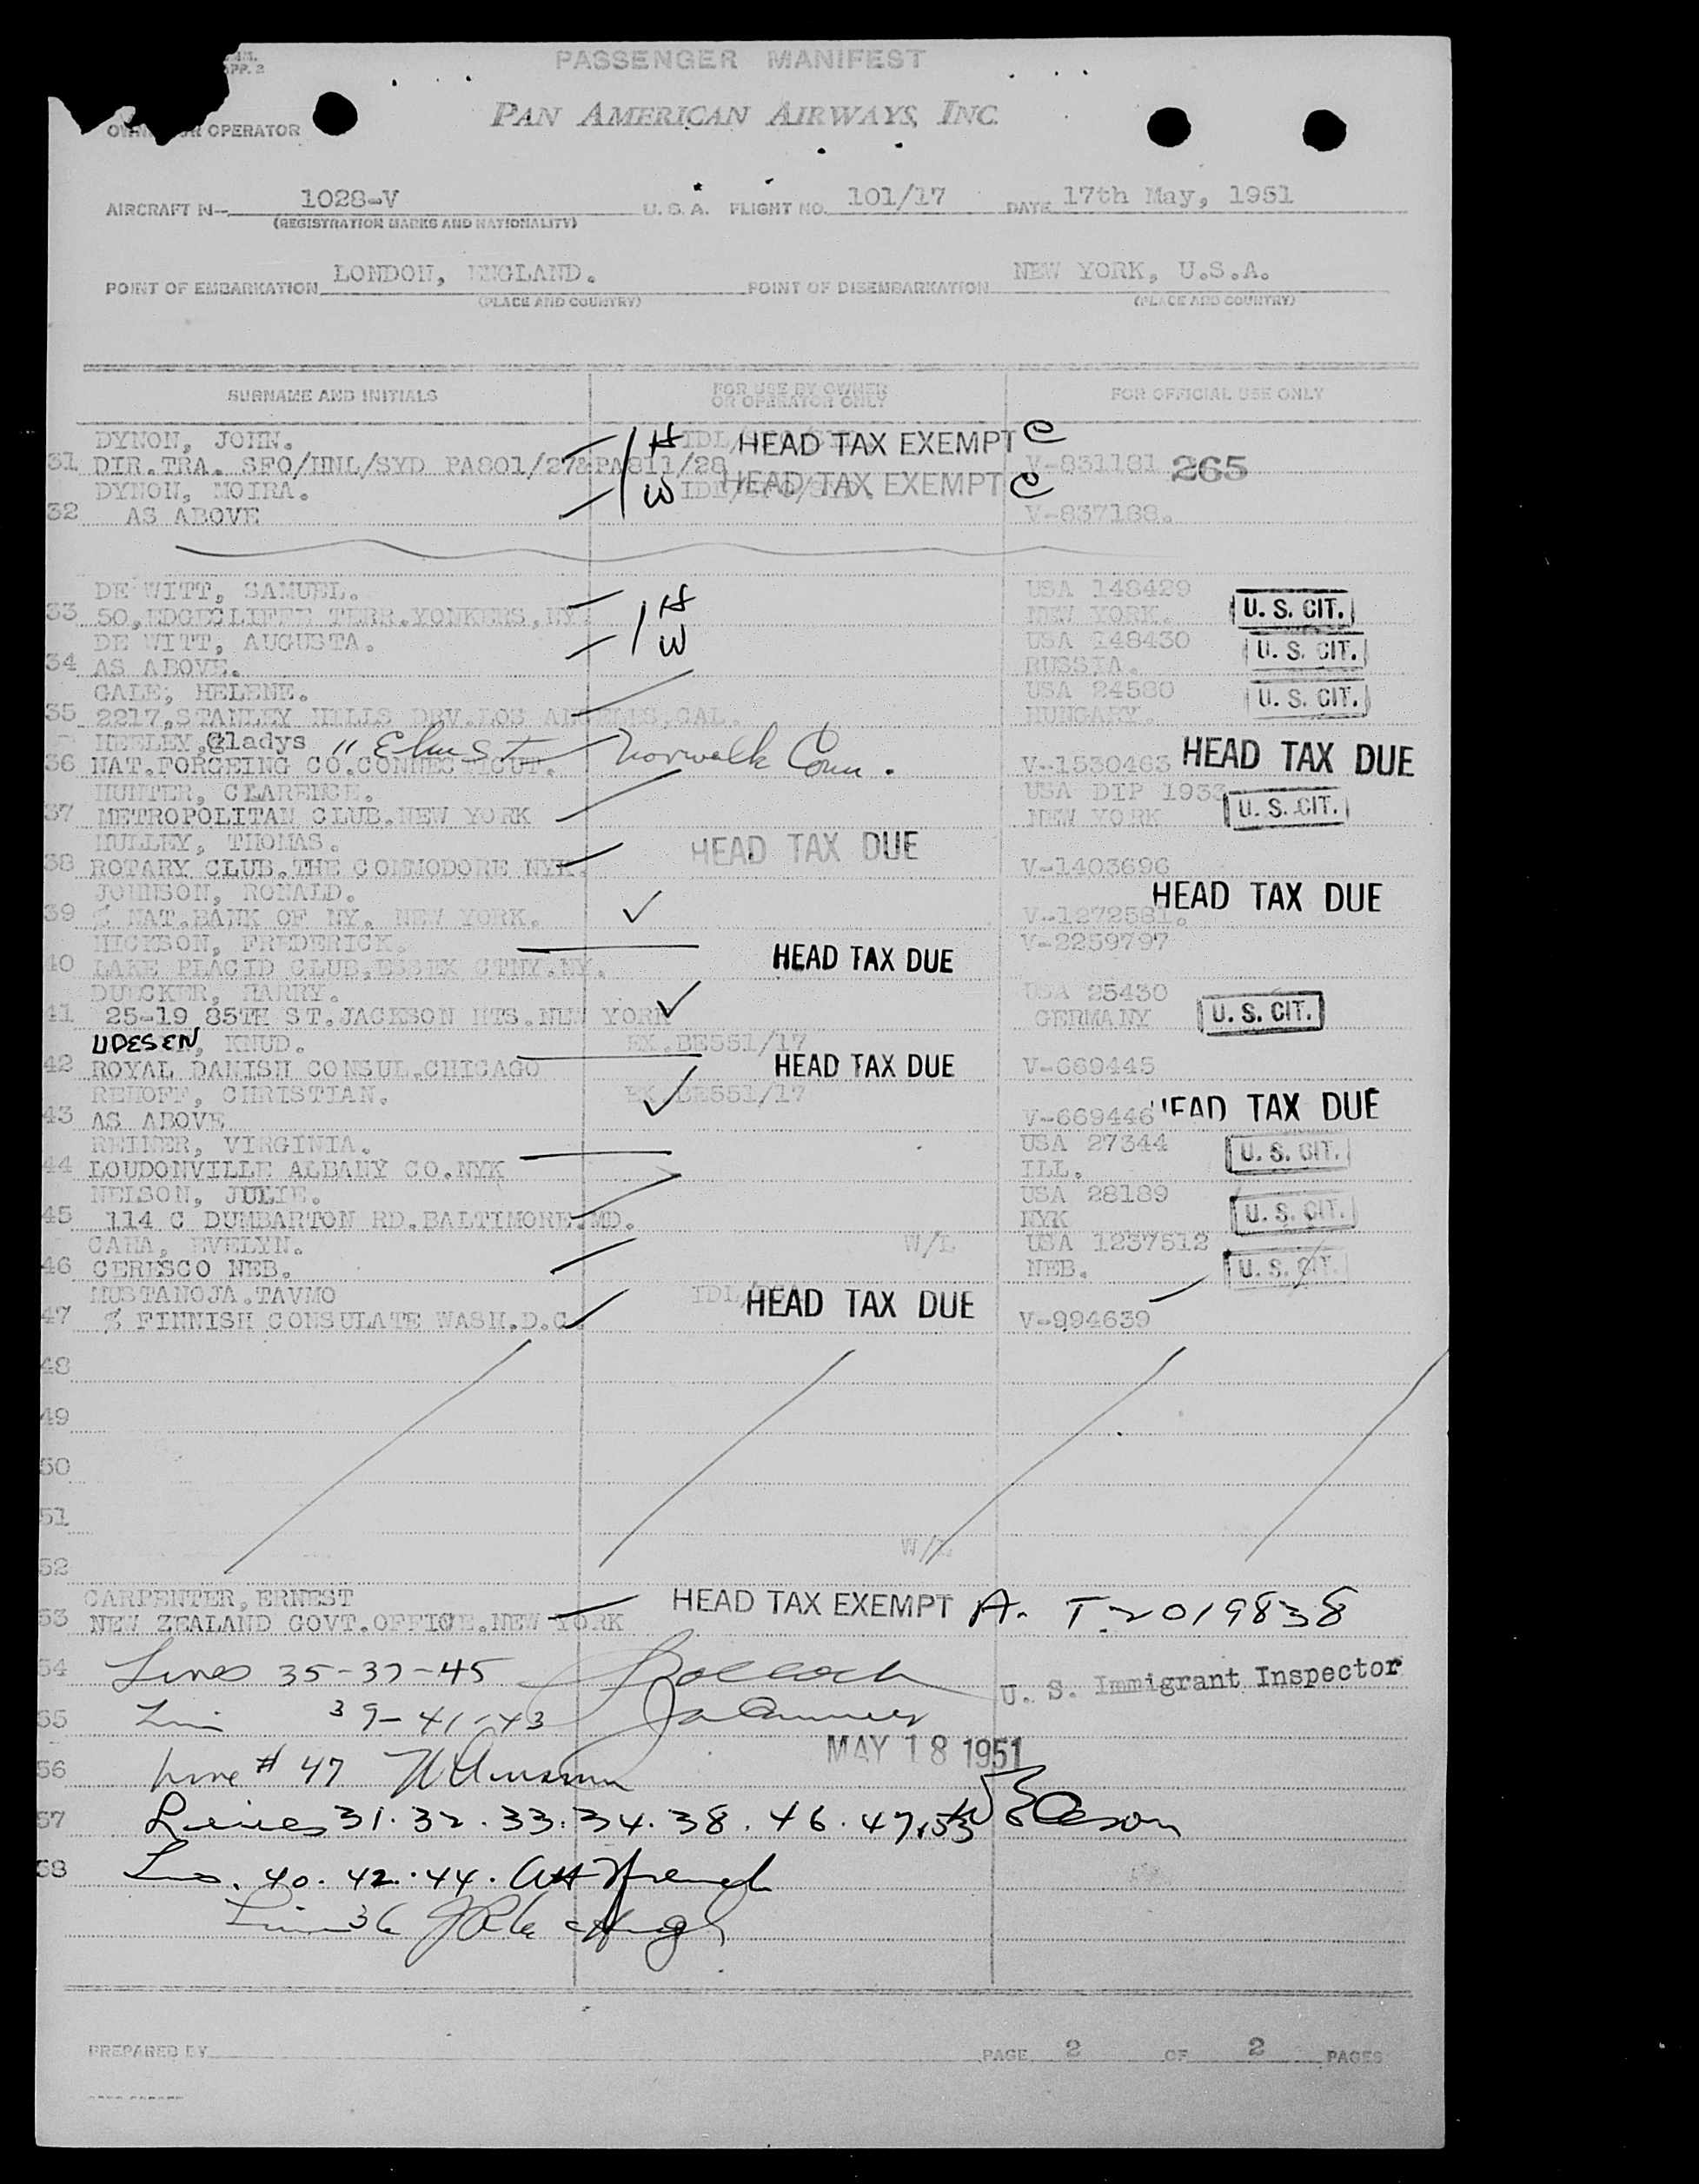 PASSENGER MANIFEST
APP. 2
PAN AMERICAN AIRWAYS, INC.
OR OPERATOR
AIRCRAFT N- 1028-V U. S. A. FLIGHT NO. 101/17 DATE 17th May, 1951
(REGISTRATION MARKS AND NATIONALITY)
POINT OF EMBARKATION LONDON, ENGLAND. POINT OF DISEMBARKATION NEW YORK, U.S.A.
(PLACE AND COUNTRY) (PLACE AND COUNTRY)
SURNAME AND INITIALS FOR USE BY OWNER OR OPERATOR ONLY FOR OFFICIAL USE ONLY
DYNON, JOHN. H HEAD TAX EXEMPT C
31 DIR.TRA. SFO/HNL/SYD PA801/27&PA811/28 V-831181 265
DYNON, MOIRA. W HEAD TAX EXEMPT C
32 AS ABOVE V-837188.
DE WITT, SAMUEL. H USA 148429
33 50,EDGECLIFFE TERR.YONKERS,NY. NEW YORK. U. S. CIT.
DE WITT, AUGUSTA. W USA 148430
34 AS ABOVE. RUSSIA. U. S. CIT.
GALE, HELENE. USA 24580
35 2217,STANLEY HILLS DRV.LOS ANGELES,CAL. HUNGARY. U. S. CIT.
HEELEY,Gladys 11 Elm St Norwalk Conn.
36 NAT.FORGEING CO.CONNECTICUT. V-1530463 HEAD TAX DUE
HUNTER, CLARENCE. USA DIP 1933
37 METROPOLITAN CLUB.NEW YORK NEW YORK U. S. CIT.
HULLEY, THOMAS. HEAD TAX DUE
38 ROTARY CLUB.THE COMMODORE NYK. V-1403696
JOHNSON, RONALD. HEAD TAX DUE
39 % NAT.BANK OF NY. NEW YORK. V-1272581.
HICKSON, FREDERICK. V-2259797
40 LAKE PLACID CLUB,ESSEX CTNY.NY. HEAD TAX DUE
DUECKER, HARRY. USA 25430
41 25-19 85TH ST.JACKSON HTS.NEW YORK GERMANY U. S. CIT.
UDESEN, KNUD. EX.BE551/17
42 ROYAL DANISH CONSUL.CHICAGO HEAD TAX DUE V-669445
REHOFF, CHRISTIAN. EX.BE551/17
43 AS ABOVE V-669446 HEAD TAX DUE
REINER, VIRGINIA. USA 27344
44 LOUDONVILLE ALBANY CO.NYK ILL. U. S. CIT.
NELSON, JULIE. USA 28189
45 114 C DUMBARTON RD.BALTIMORE.MD. NYK U. S. CIT.
CAHA, EVELYN. W/L USA 1237512
46 CERESCO NEB. NEB. U. S. CIT.
MUSTANOJA.TAVMO HEAD TAX DUE
47 % FINNISH CONSULATE WASH.D.C. V-994639
48
49
50
51
W/L
52
CARPENTER,ERNEST HEAD TAX EXEMPT A. T-2019838
53 NEW ZEALAND GOVT.OFFICE.NEW YORK
54 Lines 35-37-45 U. S. Immigrant Inspector
55 39-41-43
MAY 18 1951
56 Line # 47
57 Lines 31.32.33.34.38.46.47.53
58 40.42.44.
36
PREPARED BY PAGE 2 OF 2 PAGES